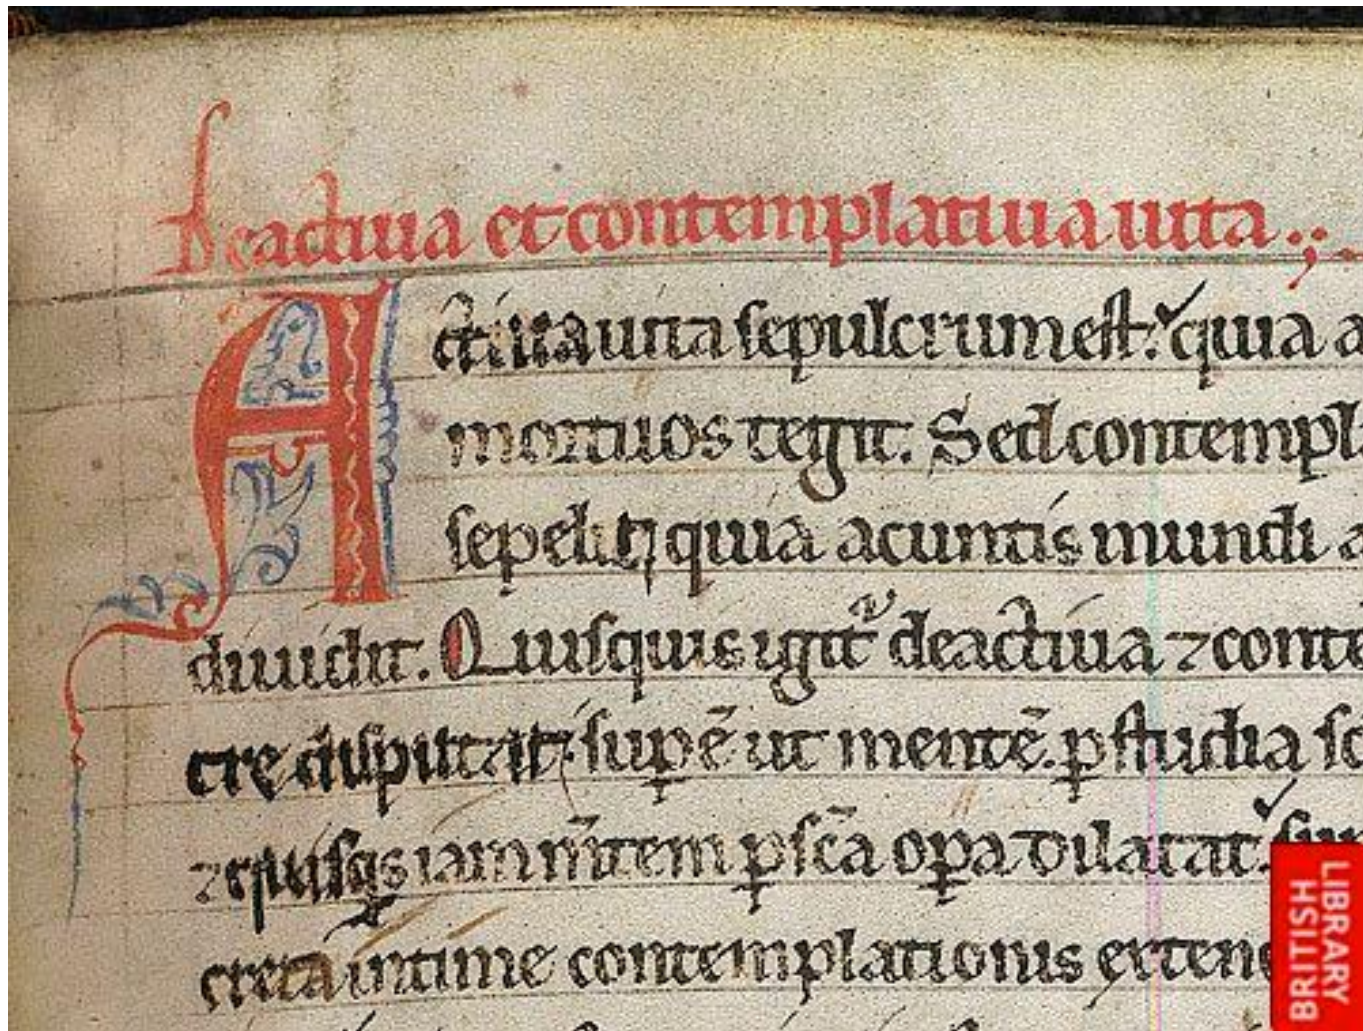 De activa et contemplativa uita
Actiua uita sepulcrum est. quia a
mortuos tegit. Sed contempl
sepelit quia a cunctis mundi a
diuidit. Quisquis igit᷑ de actiua ⁊ conte
supē ut mentē. ꝑ studia sc
⁊ iam ꝑ sc̄a oꝑa dilatat.
creta intime contemplationis extend
BRITISH
LIBRARY